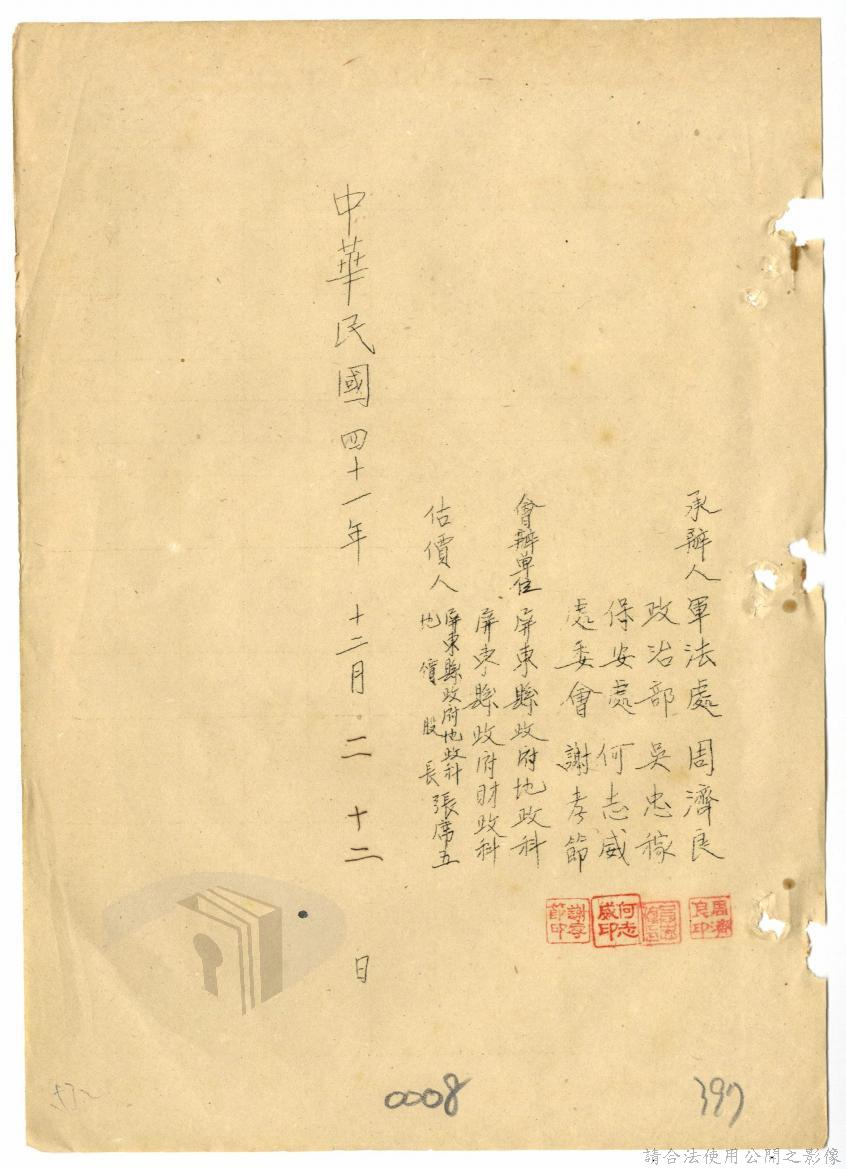 承辦人 軍法處 周濟良
政治部 吳忠稼
保安處 何志威
處委會 謝孝節
會辦單位 屏東縣政府地政科
屏東縣政府財政科
估價人 屏東縣政府地政科
地價股長 張席五
中華民國四十一年 十二月 二十二 日
周濟良印
何志威印
謝孝節印
0008
397
請合法使用公開之影像